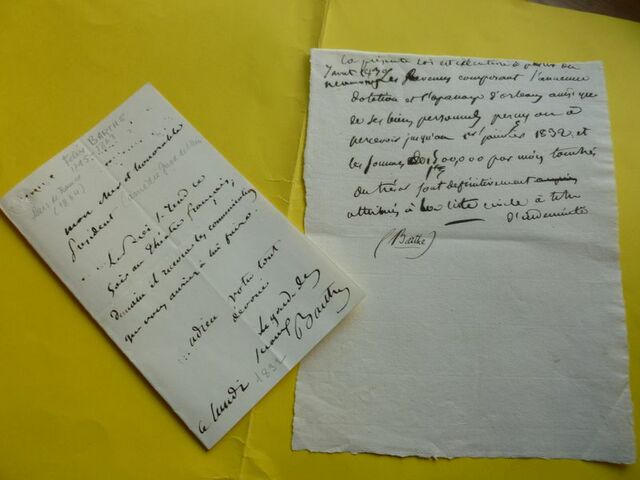 Félix BARTHE
1795-
mon cher et honorable
Président
Le Roi se rend ce
soir au Théâtre français,
demain et recevra les communications
que vous auriez à lui faire.
adieu votre tout
dévoué
Le garde des
Sceaux
Barthe
ce lundi
1832
La présente Loi est exécutoire à partir du
les revenus composant l'ancienne
dotation et l'apanage d'orléans ainsi que
de ses biens personnels perçus ou à
percevoir jusqu'au 1er janvier 1832 et
les sommes de 1500,000 par mois touchés
du trésor sont définitivement
attribués à la liste civile à titre
d'indemnité
(Barthe)